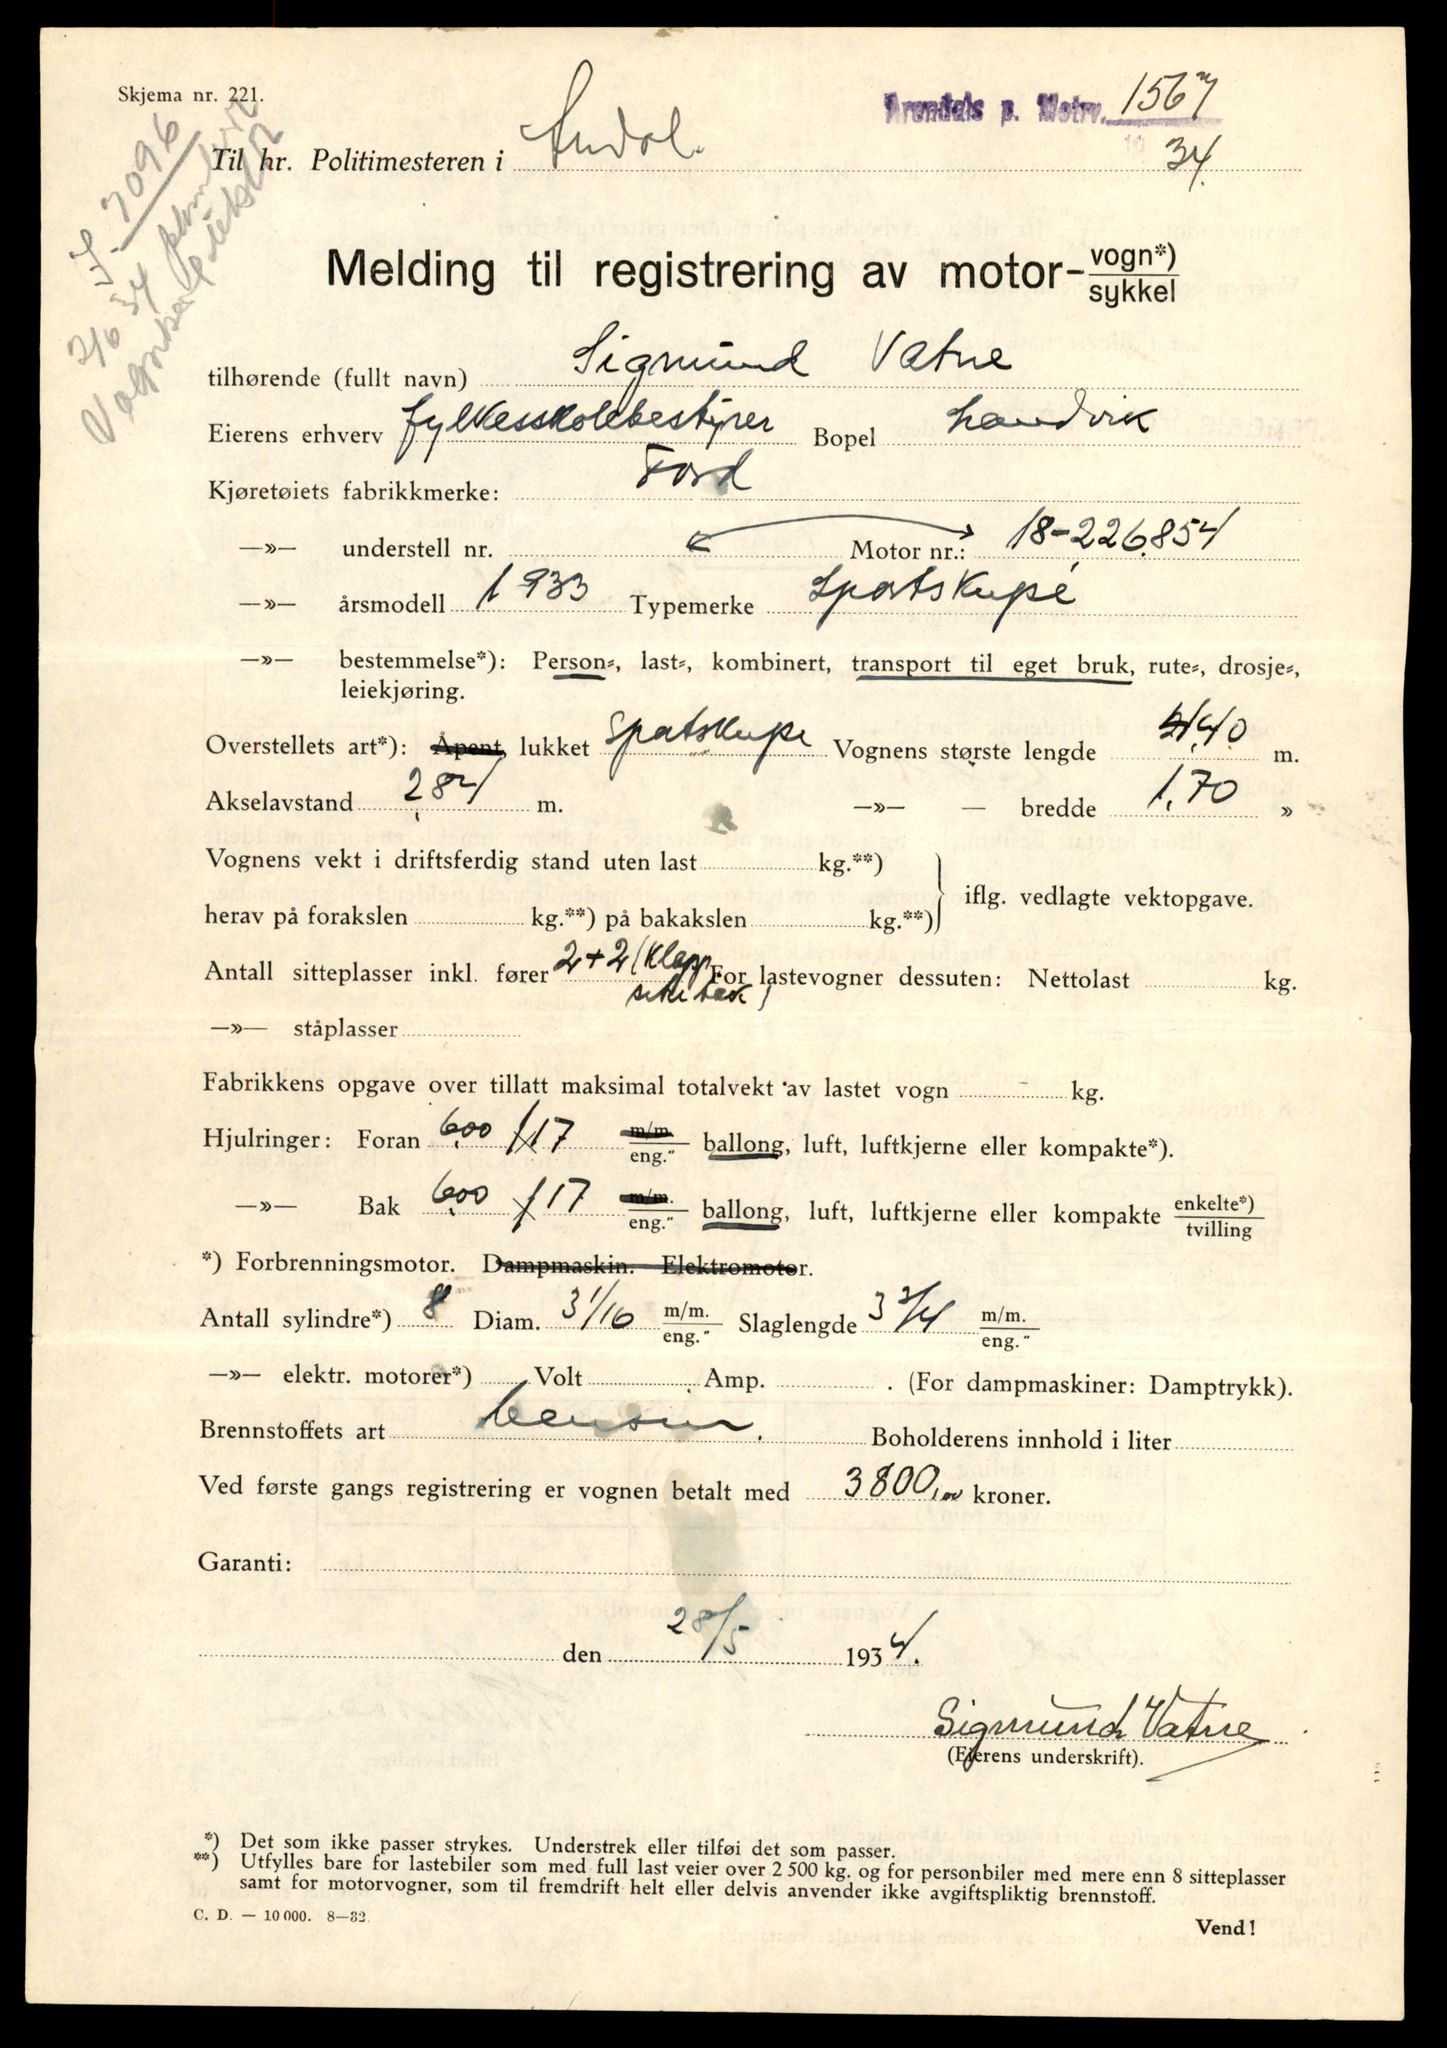 Skjema nr. 221.
Arendals p. Motrv. 1567
1934.
7096
Til hr. Politimesteren i Arendal.
Melding til registrering av motor-vogn*)
sykkel
tilhørende (fullt navn) Sigmund Vatne
Eierens erhverv fylkesskolebestyrer Bopel Landvik
Kjøretøiets fabrikkmerke: Ford
—»— understell nr. Motor nr.: 18-226854
—»— årsmodell 1933 Typemerke Sportskupé
—»— bestemmelse*): Person-, last-, kombinert, transport til eget bruk, rute-, drosje-,
leiekjøring.
Overstellets art*): Åpent, lukket Sportskupe Vognens største lengde 4,40 m.
Akselavstand 2,84 m. —»— — bredde 1,70 »
Vognens vekt i driftsferdig stand uten last kg.**)
herav på forakslen kg.**) på bakakslen kg.**) iflg. vedlagte vektopgave.
Antall sitteplasser inkl. fører 2+2 (Klapp For lastevogner dessuten: Nettolast kg.
sete bak)
—»— ståplasser
Fabrikkens opgave over tillatt maksimal totalvekt av lastet vogn kg.
Hjulringer: Foran 6,00 / 17 m/m. eng." ballong, luft, luftkjerne eller kompakte*).
—»— Bak 6,00 / 17 m/m. eng." ballong, luft, luftkjerne eller kompakte enkelte*)
tvilling
*) Forbrenningsmotor. Dampmaskin. Elektromotor.
Antall sylindre*) 8 Diam. 3 1/16 m/m. eng." Slaglengde 3 3/4 m/m. eng."
—»— elektr. motorer*) Volt Amp. . (For dampmaskiner: Damptrykk).
Brennstoffets art bensin. Boholderens innhold i liter
Ved første gangs registrering er vognen betalt med 3800,00 kroner.
Garanti:
den 28/5 1934.
Sigmund Vatne
(Eierens underskrift).
*) Det som ikke passer strykes. Understrek eller tilføi det som passer.
**) Utfylles bare for lastebiler som med full last veier over 2 500 kg. og for personbiler med mere enn 8 sitteplasser
samt for motorvogner, som til fremdrift helt eller delvis anvender ikke avgiftspliktig brennstoff.
C. D. — 10 000. 8—32.
Vend!